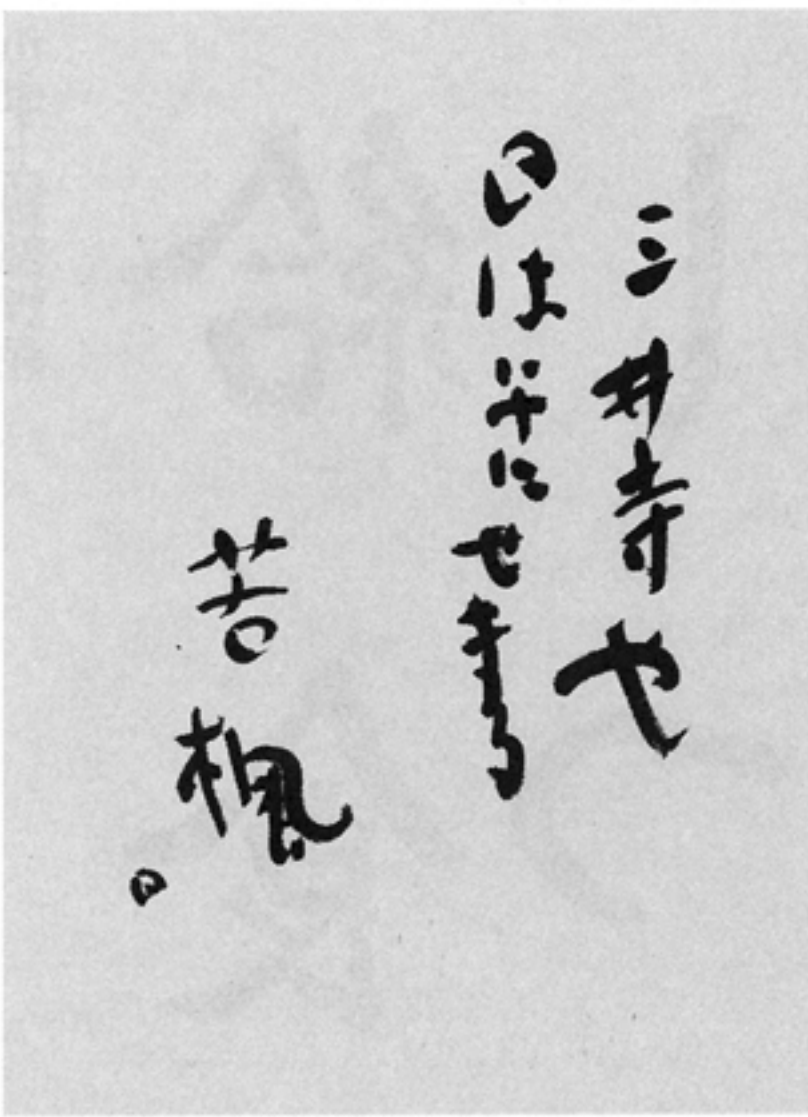 三井寺や
日は午にせまる
若楓